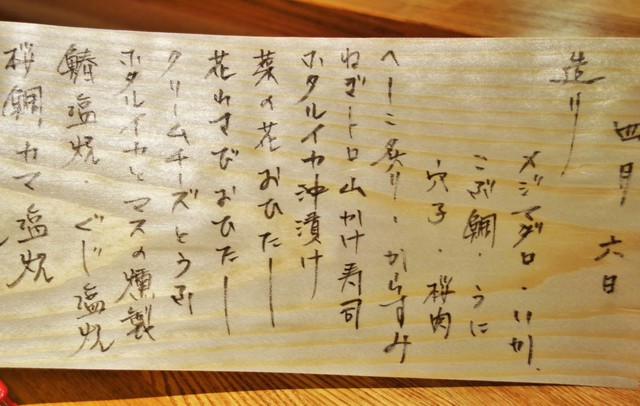 四月 六日
造り
メジマグロ・いか、
こぶ鯛・うに
穴子・桜肉
へしこ炙り・からすみ
ねぎトロ山かけ寿司
ホタルイカ沖漬け
菜の花おひたし
花わさびおひたし
クリームチーズとうふ
ホタルイカとマスの燻製
鰆塩焼 ぐじ塩焼
桜鯛カマ塩焼